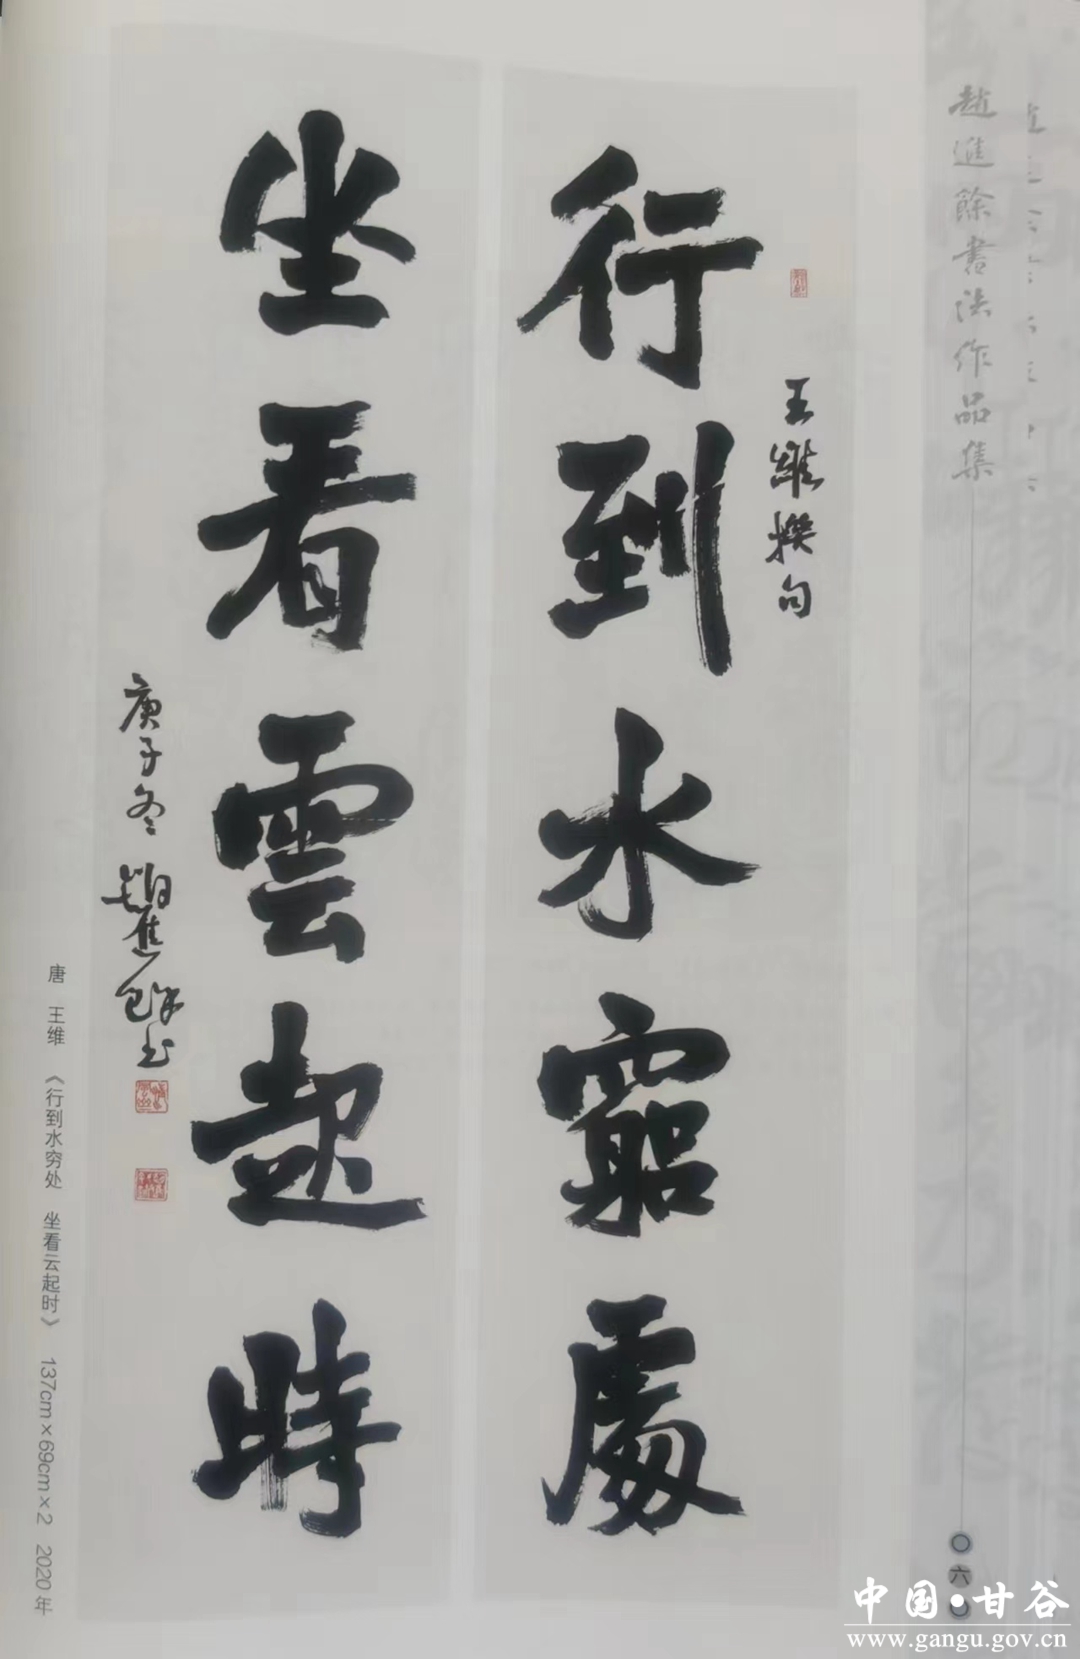 趙進餘書法作品集
王維撰句
行到水窮處
坐看雲起時
庚子冬 趙進餘书
唐 王维 《行到水穷处 坐看云起时》 137cm×69cm×2 2020年
六
中国·甘谷
www.gangu.gov.cn